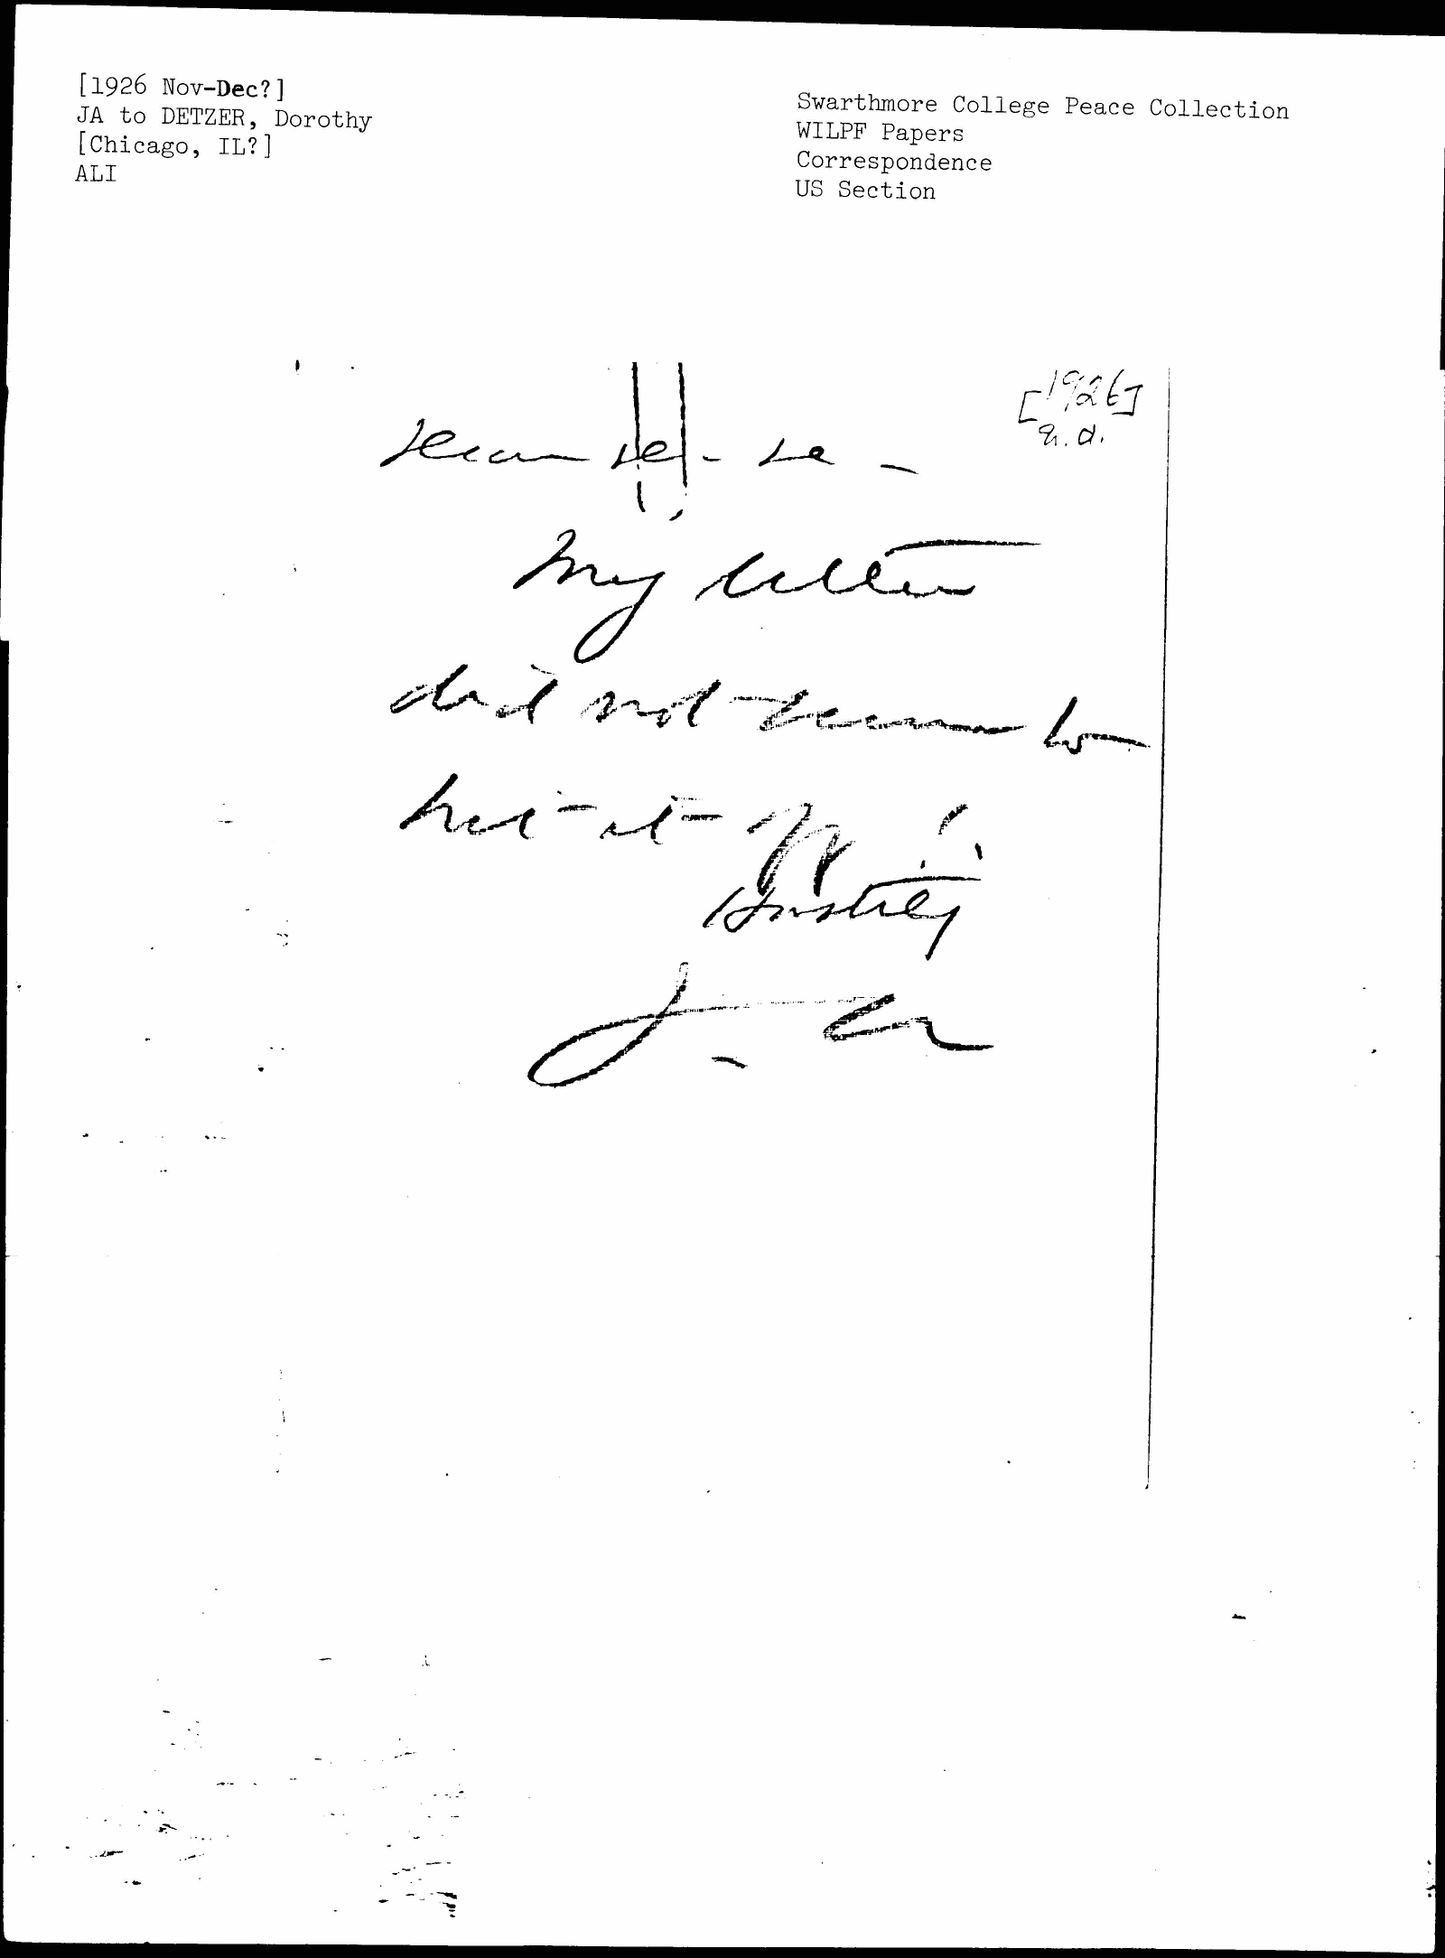 [1926 Nov-Dec?]
JA to DETZER, Dorothy
[Chicago, IL?]
ALI
Swarthmore College Peace Collection
WILPF Papers
Correspondence
US Section
[1926]
n.d.
Dear
My letter
did not seem to
hit it off!
Hastily
J. A